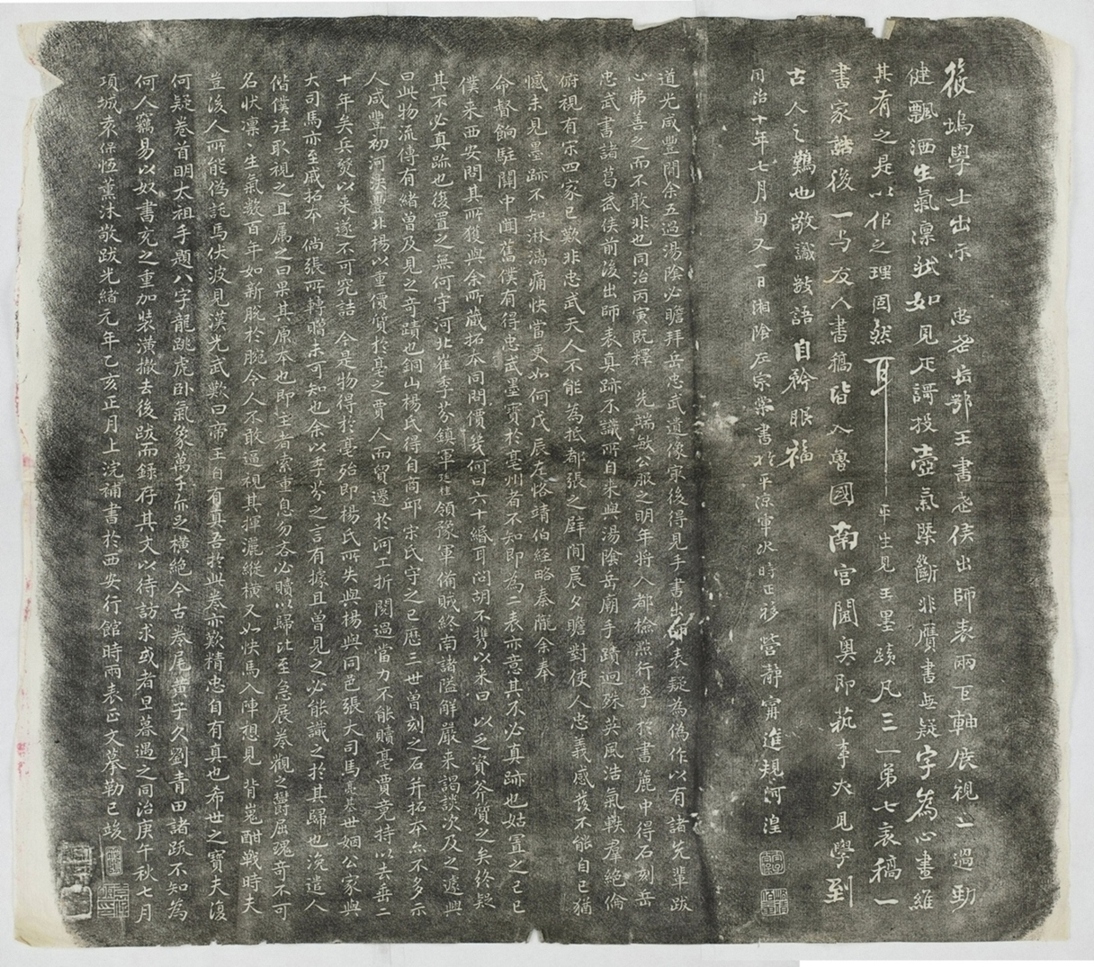 筱塢學士出示 忠武岳鄂王書武侯出師表兩巨軸展視一過勁
健飄洒生氣凜然如見疋謌投壺氣槩斷非贗書無疑字為心畫維
其有之是以佀之理固然耳 平生見王墨蹟凡三一弟七裹稿一
書家誥後一与友人書稿皆入魯國南宮閫奧即莪事亦見學到
古人之難也敬識數語自矜眼福
同治十年七月旬又一日湘陰左宗棠書於平涼軍次時正移營靜甯進規河湟
道光咸豐開余五過湯陰必瞻拜岳忠武遺像宋後得見手書出師表疑為偽作以有諸先輩跋
心弗善之而不敢非也同治丙寅既釋 先端敏公服之明年將入都檢點行李於書簏中得石刻岳
忠武書諸葛武侯前後出師表真跡不識所自來與湯陰岳廟手蹟迥殊英風浩氣軼羣絕倫
俯視有宋四家已歎非忠武天人不能為抵都張之壁間晨夕瞻對使人忠義感發不能自已猶
憾未見墨跡不知淋漓痛快當更如何戊辰左恪靖伯經略秦隴余奉
命督餉駐關中聞舊僕有得忠武墨寶於亳州者不知即為二表亦意其不必真跡也姑置之已巳
僕来西安問其所獲與余所藏拓本同問價幾何曰六十緡耳問胡不攜以来曰以乏資斧質之矣終疑
其不必真跡也復置之無何守河北崔季芬鎮軍廷桂領豫軍備賊終南諸隘解嚴来謁談次及之遽興
曰此物流傳有緒曾及見之奇蹟也銅山楊氏得自商邱宋氏守之已歷三世曾刻之石幷拓本亦不多示
人咸豐初河決豐北楊以重價質於亳之賈人而貿遷於河工折閱過當力不能贖亳賈竟持以去垂二
十年矣兵燹以来遂不可究詰今是物得於亳殆即楊氏所失與楊與同邑張大司馬亮基世姻公家與
大司馬亦至戚拓本倘張所轉贈未可知也余以季芬之言有據且曾見之必能識之於其歸也浼遣人
偕僕往取視之且屬之曰果其原本也即主者索重息勿吝必贖以歸比至急展卷觀之鬱屈瑰奇不可
名狀凛〻生氣數百年如新脫於腕令人不敢逼視其揮灑縱橫又如快馬入陣想見 背嵬酣戰時夫
豈後人所能偽託馬伏波見漢光武歎曰帝王自有真吾於此卷亦歎精忠自有真也希世之寶夫復
何疑卷首明太祖手題八字龍跳虎卧氣象萬千亦足橫絕今古卷尾黃子久劉青田諸跋不知為
何人竊易以奴書充之重加裝潢撤去後跋而錄存其文以待訪求或者旦暮遇之同治庚午秋七月
項城袁保恆薰沐敬跋光緒元年乙亥正月上浣補書於西安行館時兩表正文摹勒已竣